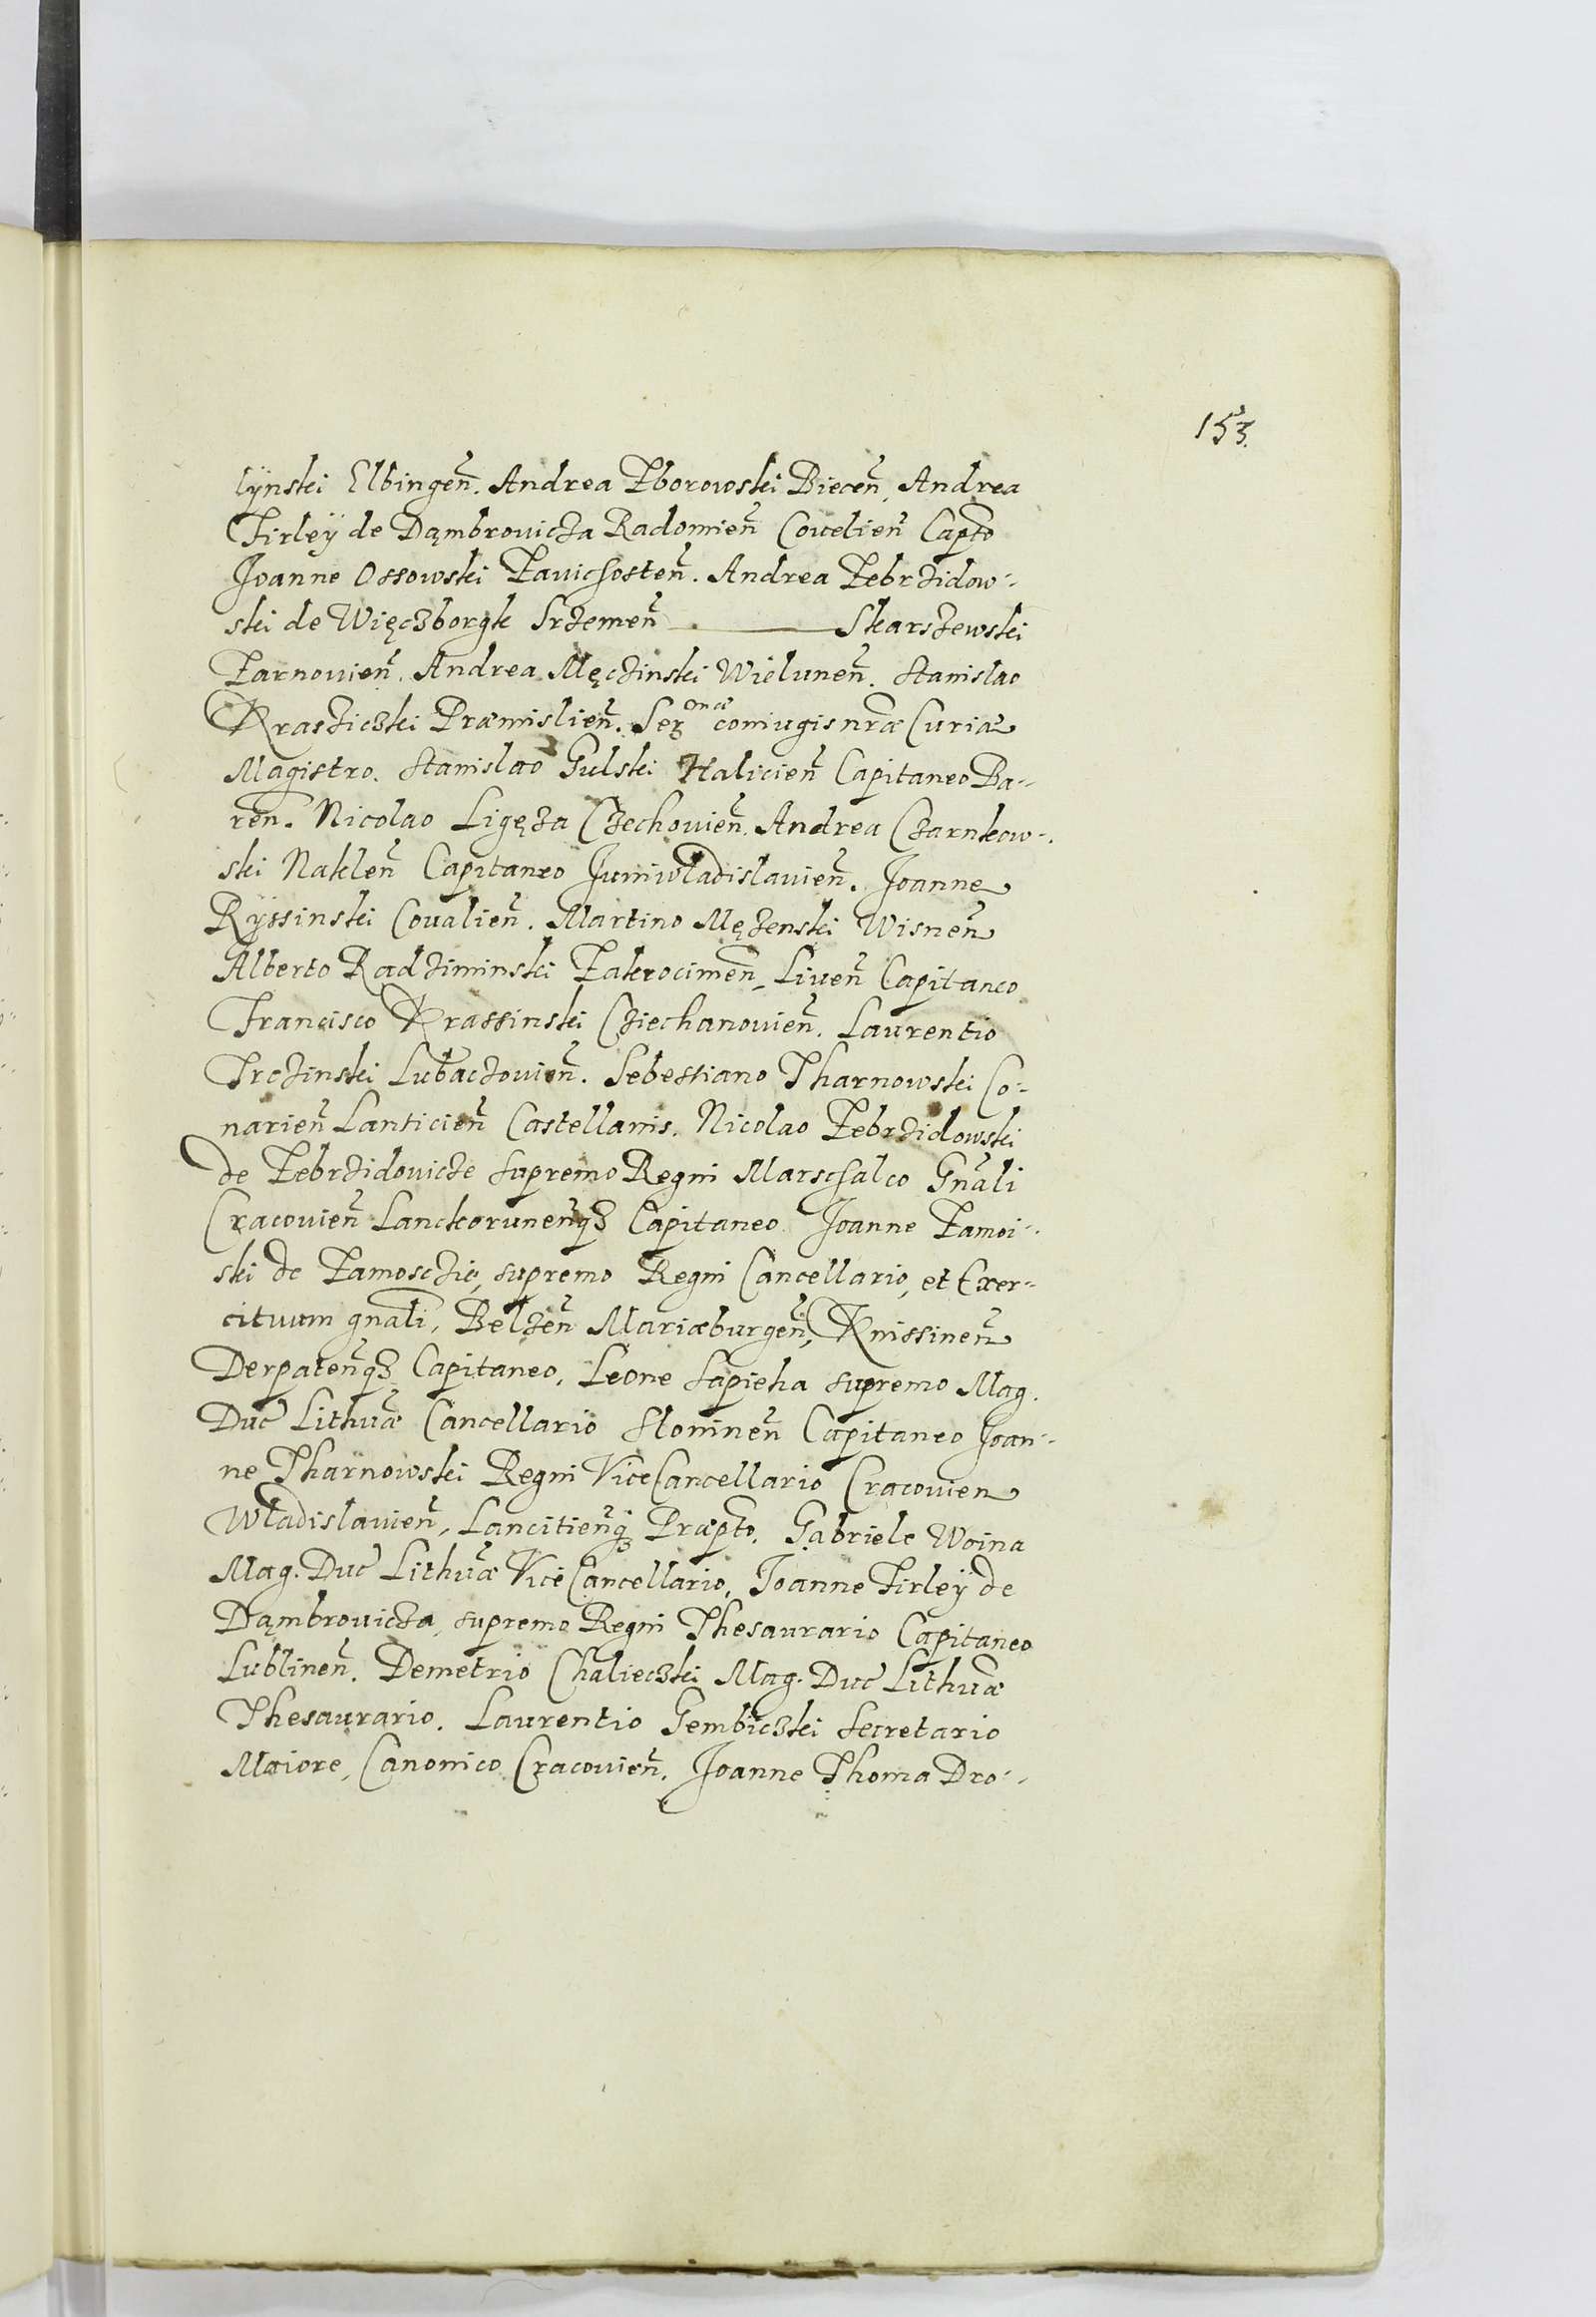 153.
lÿnski Elbingeñ. Andrea Zborowski Bieceñ, Andrea
Firleÿ de Dąmbrovicza Radomieñ Covelieñ Capto
Joanne Ossowski Zavichosteñ. Andrea Zebrzidow-
ski de Więczborgk Srzemeñ ——— Skarszewski
Zarnovieñ. Andrea Męczinski Wieluneñ. Stanislao
Krasziczki Præmislieñ. Ser onæ coniugis nr̃æ Curiæ
Magistro. Stanislao Gulski Halicieñ Capitaneo Ba-
reñ. Nicolao Ligęza Czechovieñ. Andrea Czarnkow-
ski Nakleñ Capitaneo Juniwladislavieñ. Joanne
Rÿssinski Covalieñ. Martino Mężenski Wisneñ
Alberto Radziminski Zakrocimeñ, Liveñ Capitaneo
Francisco Krassinski Cziechanovieñ. Laurentio
Trczinski Lubaczovieñ. Sebestiano Tharnowski Co-
narieñ Lanticieñ Castellanis. Nicolao Zebrzidowski
de Zebrzidovicze supremo Regni Marschalco Gñali
Cracovieñ Lanckoruneñqꝫ Capitaneo Joanne Zamoi-
ski de Zamosczie, supremo Regni Cancellario, et Exer-
cituum gnãli, Belzeñ Mariæburgeñ, Knissineñ
Derpateñqꝫ Capitaneo, Leone Sapieha supremo Mag.
Duc Lithuã Cancellario Slonineñ Capitaneo Joan-
ne Tharnowski Regni Vice Cancellario Cracovien
Wladislavieñ, Lancitieñqꝫ Præpto. Gabriele Woina
Mag. Duc Lithuæ Vice Cancellario, Joanne Firleÿ de
Dąmbrovicza, supremo Regni Thesaurario Capitaneo
Lublineñ. Demetrio Chalieczki Mag. Duc Lithuæ
Thesaurario. Laurentio Gembiczki Secretario
Maiore, Canonico Cracovieñ. Joanne Thoma Dro-